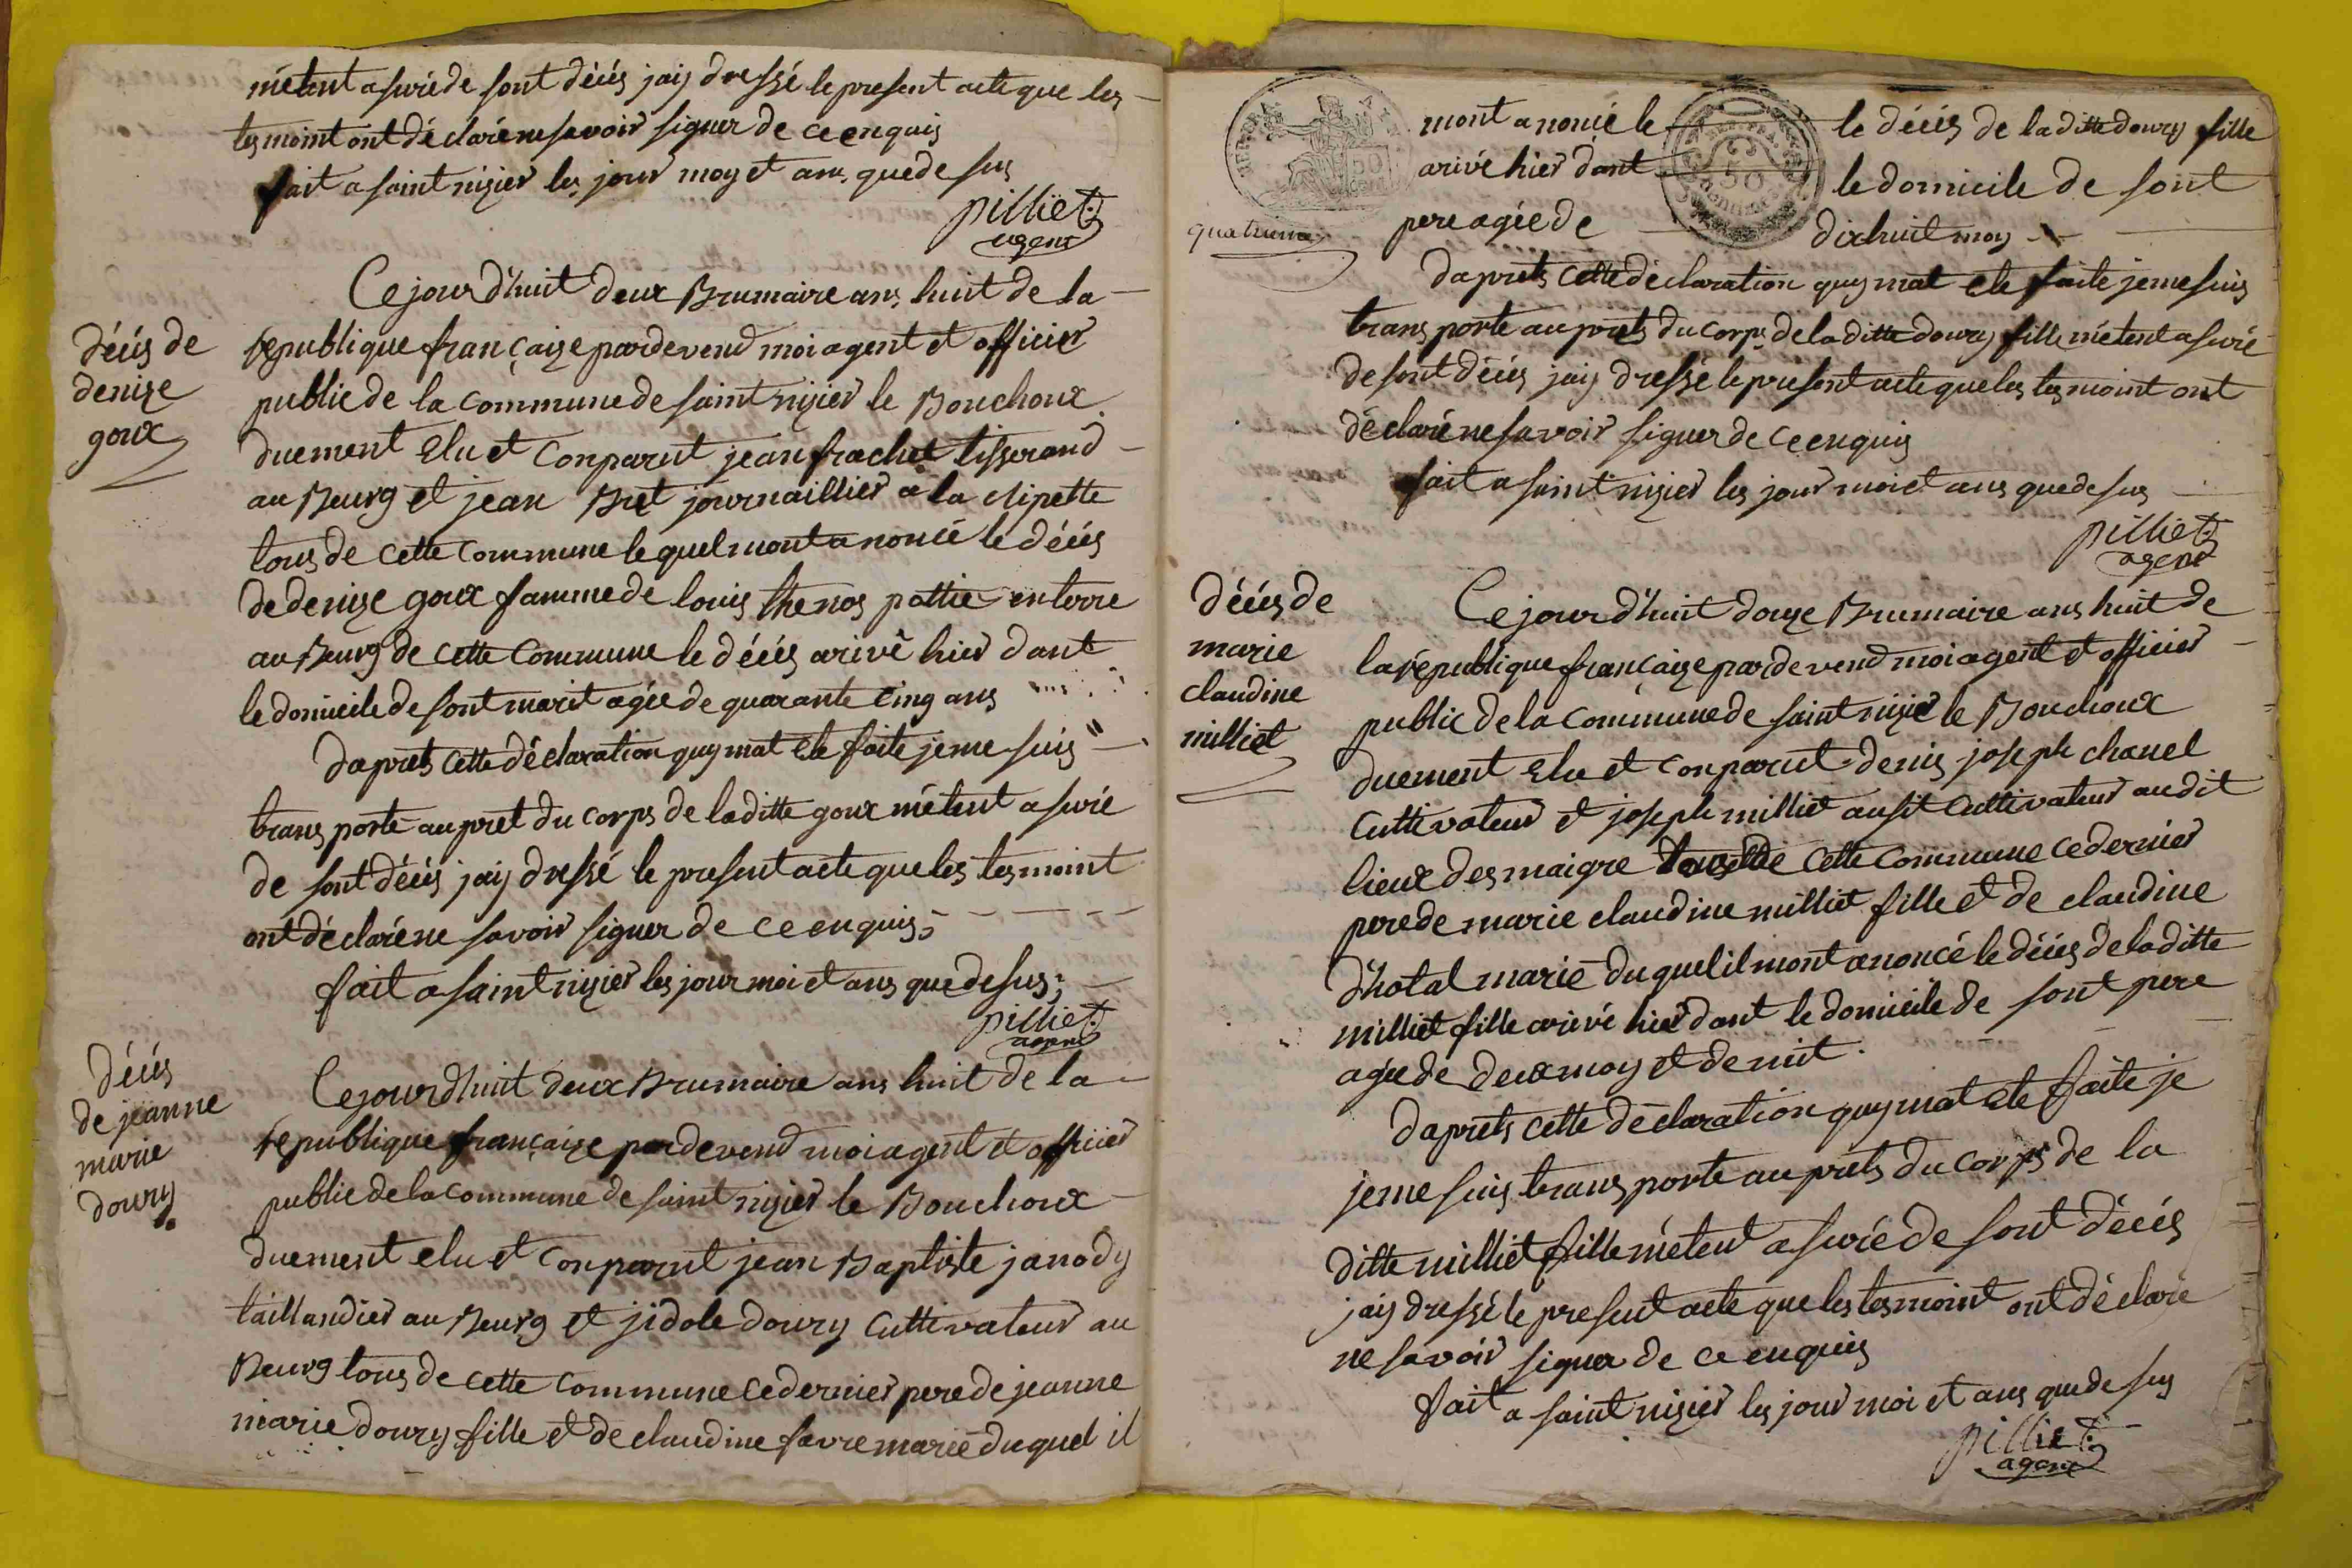 mêtent asuréde sont décés jaij dressé le present acte que les
tesmoint ont déclaré ne savoir signer de ce enquis
fait a saint nizier les jour moy et ans que de sus
pilliet
agent
Ce jourd'huit deux Brumaire ans huit de la
décés de
denize
goux
republique françaize pardevend moi agent et officier
public de la commune de saint nizier le Bouchoux
duement Elu et Conparut jean frachet tisserand
au Beurg et jean Bret journaillier a la clipette
tous de cette commune le quel mont anoncé le décés
de denize goux famme de louis thenos pottie en terre
au Beurg de cette Commune le décés arivé hier dant
le domicile de sont marit agée de quarante Cinq ans
daprets cette déclaration quy mat ete faite je me suis
trans porté au pret du corps de la ditte goux mêtent asuré
de sont décés jaij dressé le present acte que les tesmoint
ont déclaré ne savoir signer de ce enquis
fait a saint nizier les jour moi et ans que de sus
pilliet
agent
décés
de jeanne
marie
doury
Ce jourd'huit deux Brumaire ans huit de la
republique françaize pardevend moi agent et officier
public de la commune de saint nizier le Bouchoux
duement elu et Conparut jean Baptiste janody
taillandier au Beurg et jidole doury Cuttivateur au
Beurg tous de cette Commune ce dernier pere de jeanne
marie doury fille et de claudine favre marié duquel il
mont anoncé le le décés de la ditte doury fille
arivé hier dant le domicile de sont
pere agée de dixhuit moy
50
daprets cette déclaration quy mat ete faite je me suis
trans porte au prets du corps de la ditte doury fille mêtent asuré
de sont décés jaij dressé le present acte que les tesmoint ont
déclaré ne savoir signer de ce enquis
fait a saint nizier les jour moi et ans que de sus
pilliet
agent
décés de
marie
claudine
milliet
Ce jourd'huit douze Brumaire ans huit de
la republique françaize pardevend moi agent et officier
public de la Commune de saint nizier le Bouchoux
duement Elu et Conparut denis joseph chanel
Cuttivateur et joseph milliet ausit Cuttivateur au dit
lieux des maigre tous de cette commune ce dernier
pere de marie claudine milliet fille et de claudine
d'hotal marié duquel il mont anoncé le décés de la ditte
milliet fille arivé hier dant le domicile de sont pere
agée de deux moy et demit
daprets cette déclaration quy mat ete faite je
je me suis trans porte au prets du corps de la
ditte milliet fille mêtent asuré de sont décés
jaij dressé le present acte que les tesmoint ont déclaré
ne savoir signer de ce enquis
fait a saint nizier les jour moi et ans que de sus
pilliet
agent